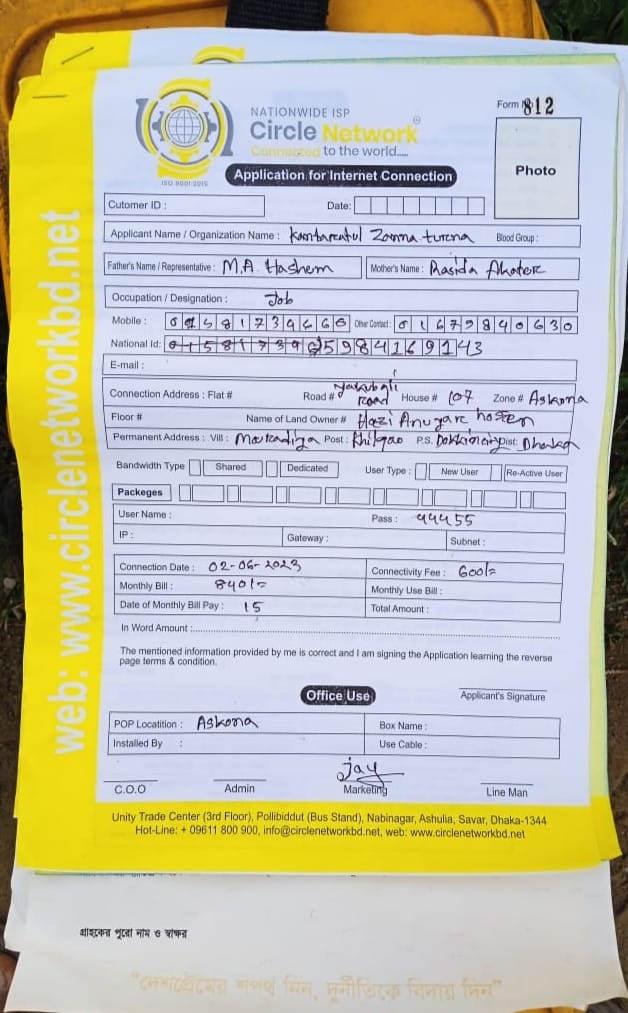 NATIONWIDE ISP
Circle Network
Connected to the world.....
ISO 9001:2015
Form No 812
Photo
Application for Internet Connection
Cutomer ID :
Date:
Applicant Name / Organization Name : Kantareatul Zanna turena Blood Group :
Father's Name / Representative : M.A. Hashem Mother's Name : Rasida Akter
Occupation / Designation : Job
Mobile : Other Contact : 01679840630
National Id: 5984169143
E-mail :
Connection Address : Flat # Road # Road House # 107 Zone # Askona
Floor # Name of Land Owner # Hazi Anugare hosten
Permanent Address : Vill : Post : Khilgao P.S. Dist: Dhaka
Bandwidth Type Shared Dedicated User Type : New User Re-Active User
Packeges
User Name : Pass : 44455
IP : Gateway : Subnet :
Connection Date : 02-06-2023 Connectivity Fee : 600/=
Monthly Bill : 840/= Monthly Use Bill :
Date of Monthly Bill Pay : 15 Total Amount :
In Word Amount :
The mentioned information provided by me is correct and I am signing the Application learning the reverse
page terms & condition.
Office Use
Applicant's Signature
POP Locatition : Askona Box Name :
Installed By : Use Cable :
jay
C.O.O Admin Marketing Line Man
Unity Trade Center (3rd Floor), Pollibiddut (Bus Stand), Nabinagar, Ashulia, Savar, Dhaka-1344
Hot-Line: + 09611 800 900, info@circlenetworkbd.net, web: www.circlenetworkbd.net
web: www.circlenetworkbd.net
গ্রাহকের পুরো নাম ও স্বাক্ষর
"দেশপ্রেমের শপথ নিন, দুর্নীতিকে বিদায় দিন"